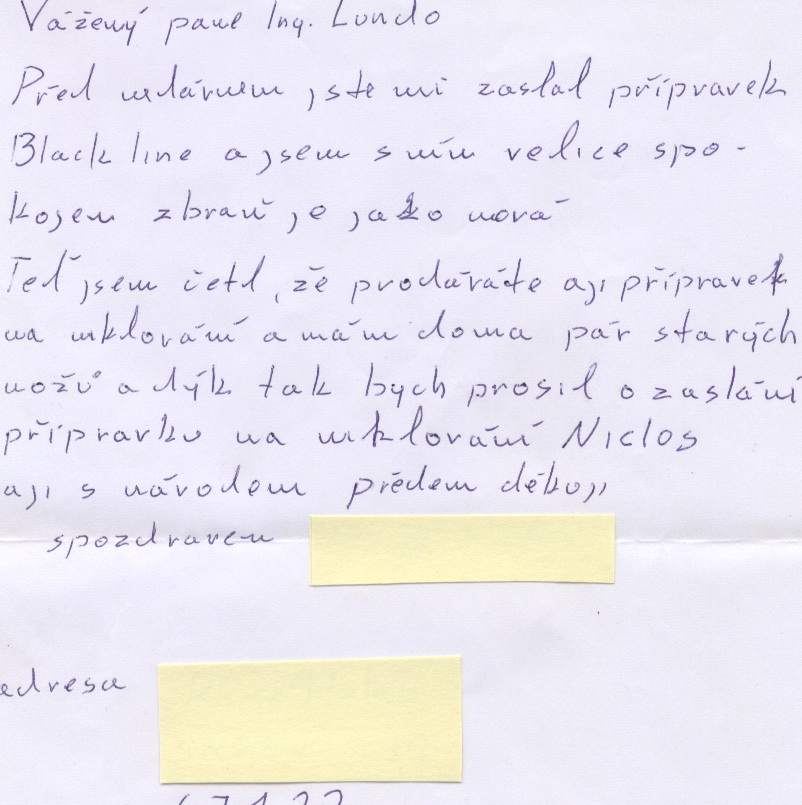 Vážený pane Ing. Lundo
Před nedávnem jste mi zaslal přípravek
Black line a jsem s ním velice spo-
kojem zbraň je jako nová
Teď jsem četl, že prodáváte aji přípravek
na niklování a mám doma pár starých
nožů a dýk tak bych prosil o zaslání
přípravku na niklování Niclos
aji s návodem předem děkuji
spozdravem
adresa